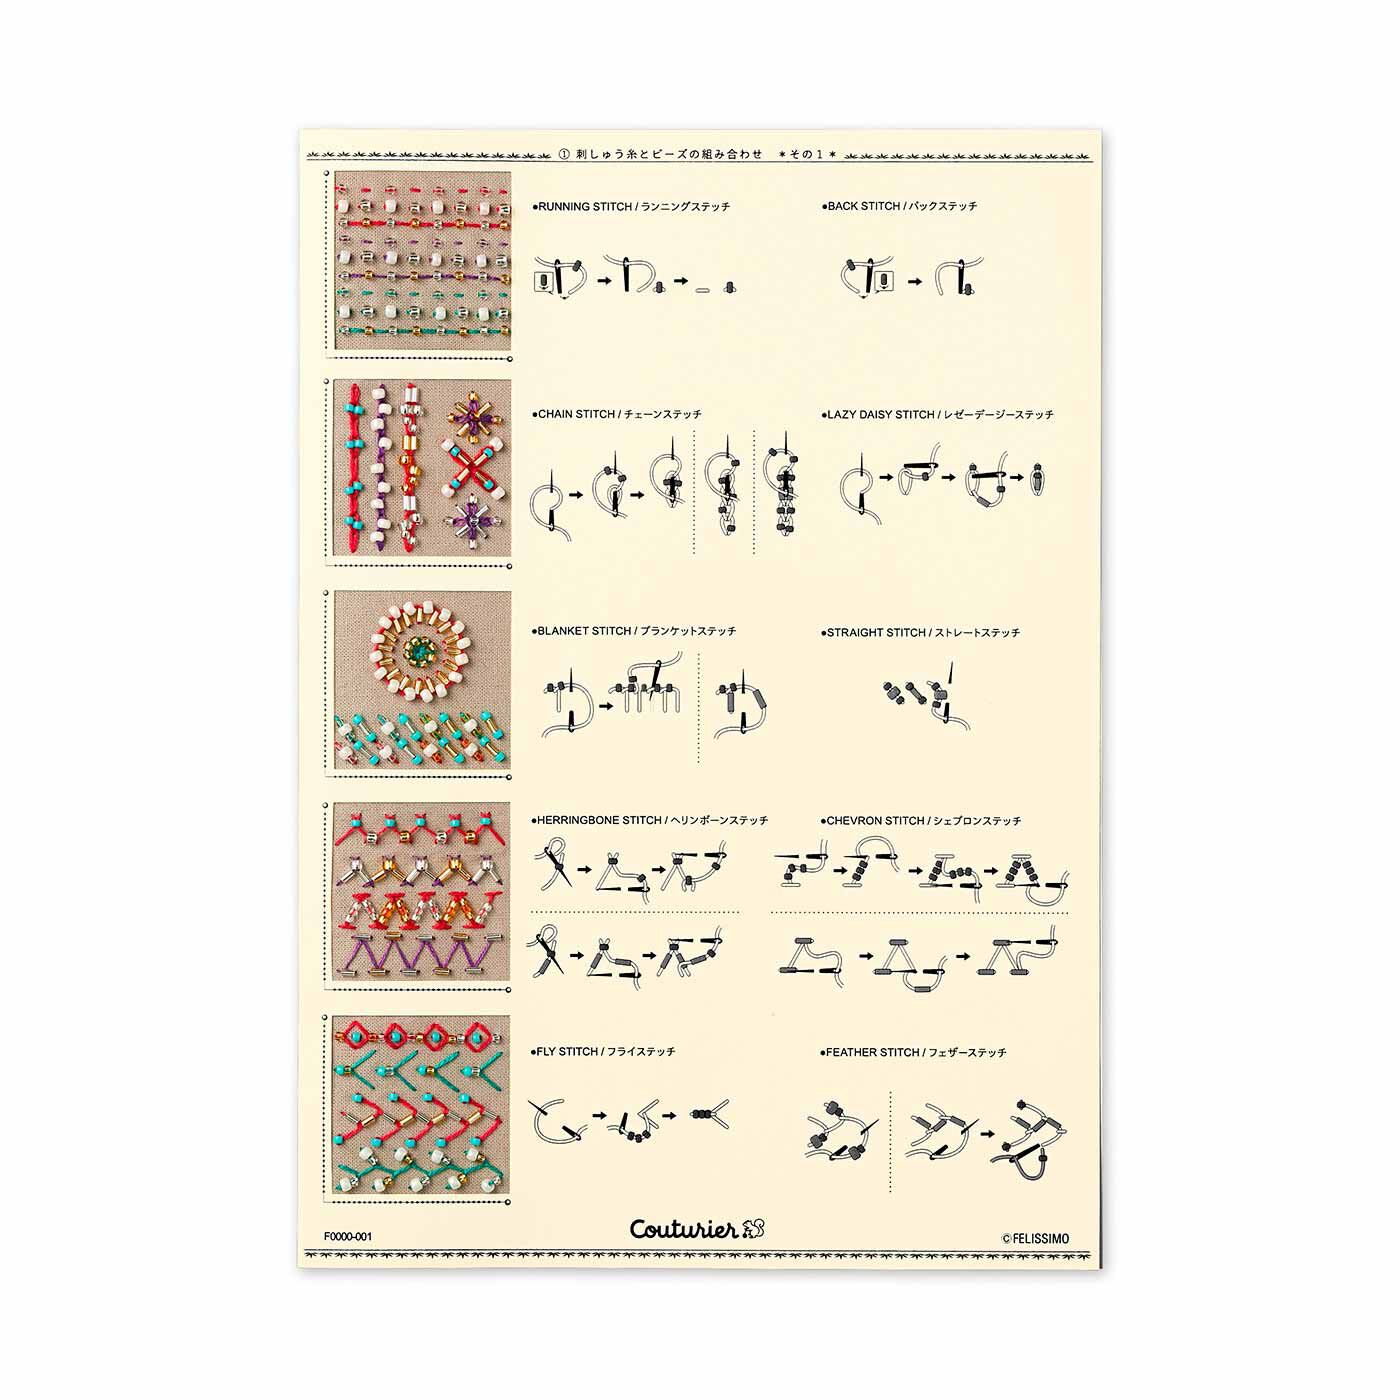 ① 刺しゅう糸とビーズの組み合わせ ＊その１＊
●RUNNING STITCH / ランニングステッチ
●BACK STITCH / バックステッチ
●CHAIN STITCH / チェーンステッチ
●LAZY DAISY STITCH / レゼーデージーステッチ
●BLANKET STITCH / ブランケットステッチ
●STRAIGHT STITCH / ストレートステッチ
●HERRINGBONE STITCH / ヘリンボーンステッチ
●CHEVRON STITCH / シェブロンステッチ
●FLY STITCH / フライステッチ
●FEATHER STITCH / フェザーステッチ
F0000-001
Couturier
©FELISSIMO